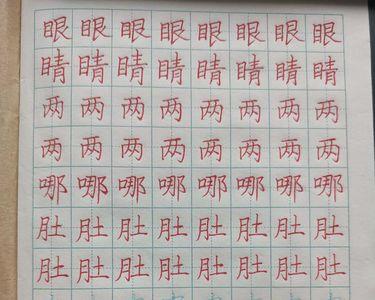 眼眼眼眼眼眼眼眼
睛睛睛睛睛睛睛睛
两两两两两两两两
两两两两两两两两
哪哪哪哪哪哪哪哪
肚肚肚肚肚肚肚肚
肚肚肚肚肚肚肚肚